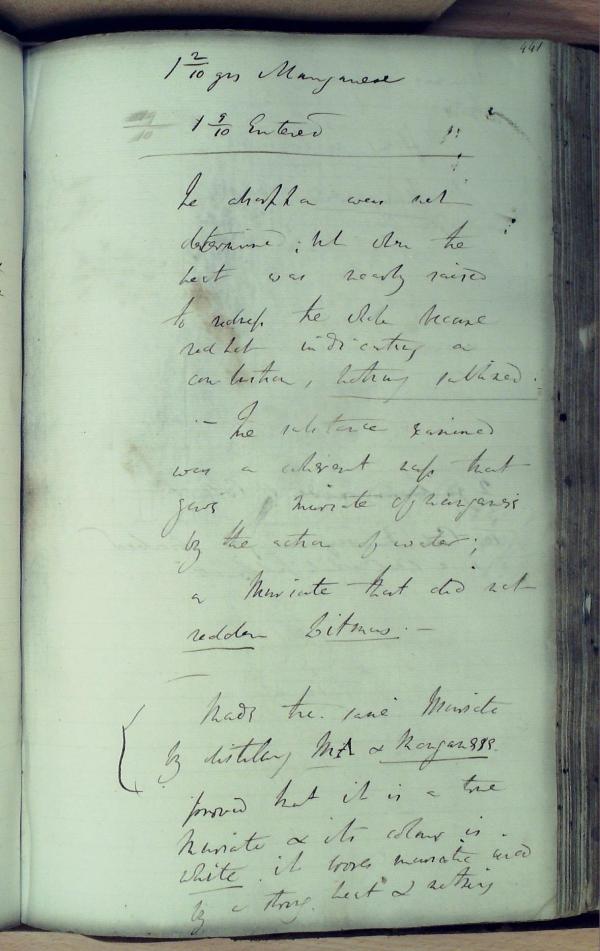 441
1 2/10 grs Manganese
1 9/10 Entered
The absorption was not
determined; but when the
heat was nearly raised
to redness the whole became
red hot indicating a
combustion, nothing sublimed.
– The substance examined
was a coherent mass that
gave Muriate of manganese
by the action of water;
a Muriate that did not
redden Litmus. –
Made the same Muriate
by distilling MA & Manganese.
proved that it is a true
Muriate & its colour is
white. it loses muriatic acid
by a strong heat & nothing